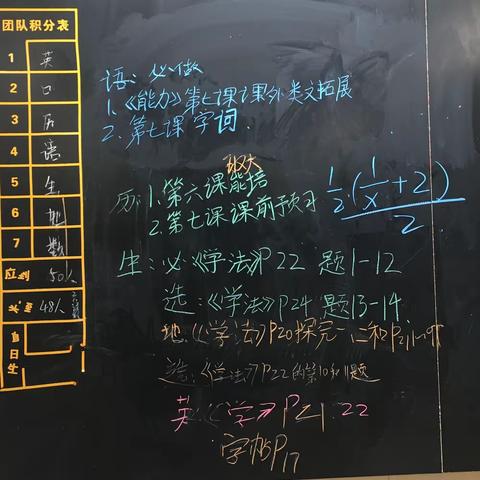 团队积分表
1 英
2 口
3 历
4 语
5 生
6 地
7 数
应到 50人
实到 48人
值日生
语：必做
1、《能力》第七课课外类文拓展
2、第七课字词
历：1.第六课能培
2.第七课课前预习
1/2·(1/x+2)
2
生：必《学法》P22 题1-12
选：《学法》P24 题13-14
地：《学法》P20探究一、二和P21
选：《学法》P22的第10和11题
英：《学》P21 22
字帖P17